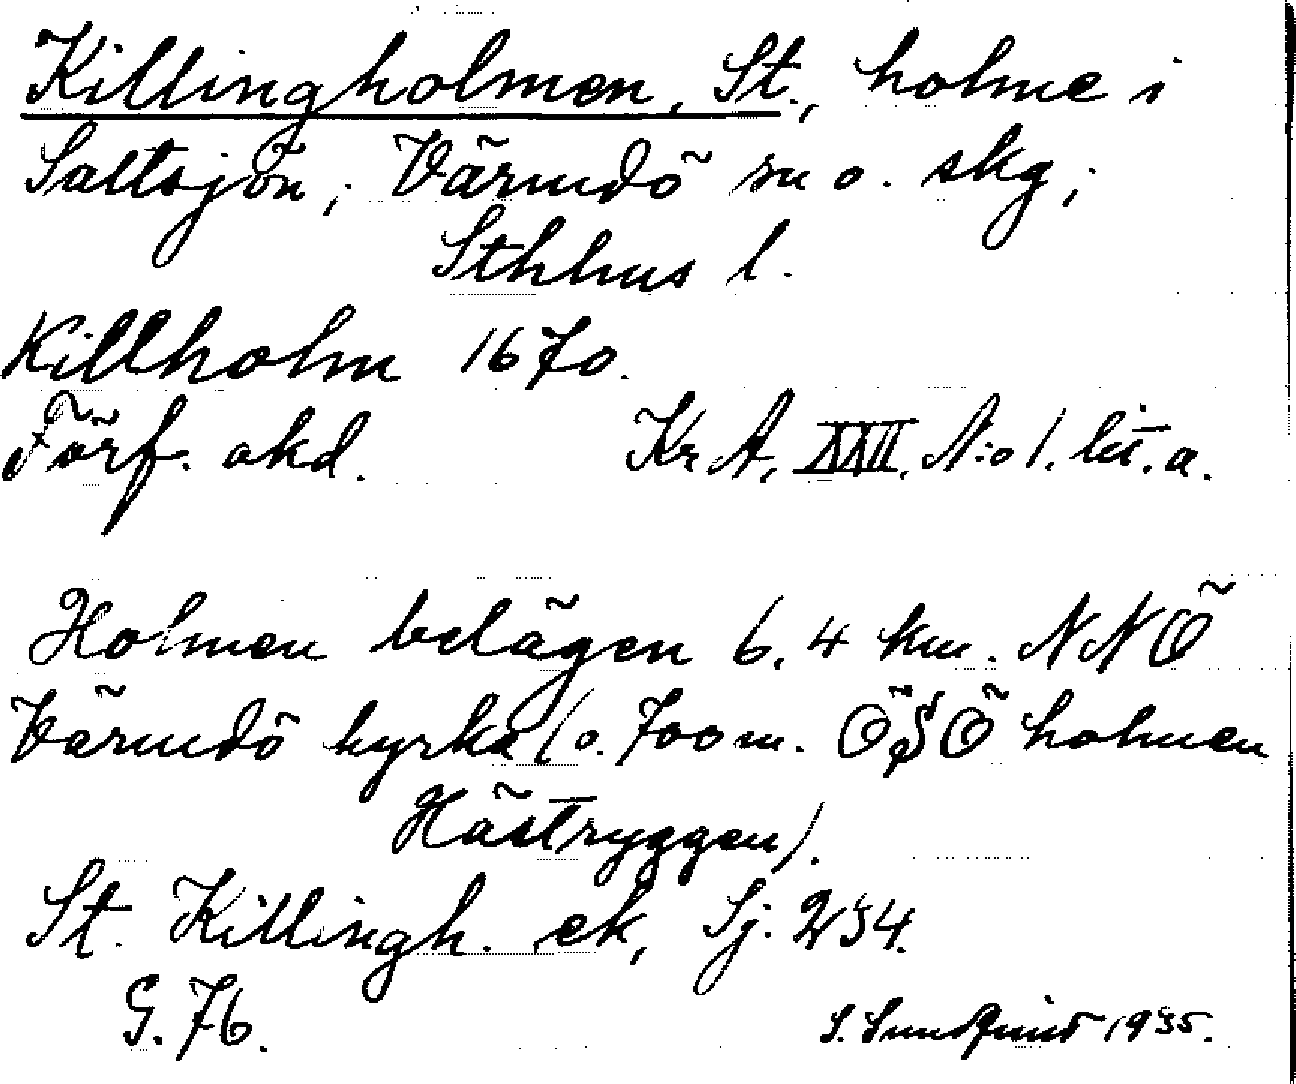 Killingholmen, St., holme i
Saltsjön; Värmdö sn o. skg;
Sthlms l.
Killholm 1670.
Förf. okd. Kr A, XXII, N:o 1. lit. a.
Holmen belägen 6,4 km. NNÖ
Värmdö kyrka (o. 700 m. ÖSÖ holmen
Hästryggen).
St. Killingh. ek, Sj. 234.
G. 76.
S. Sundqvist 1935.